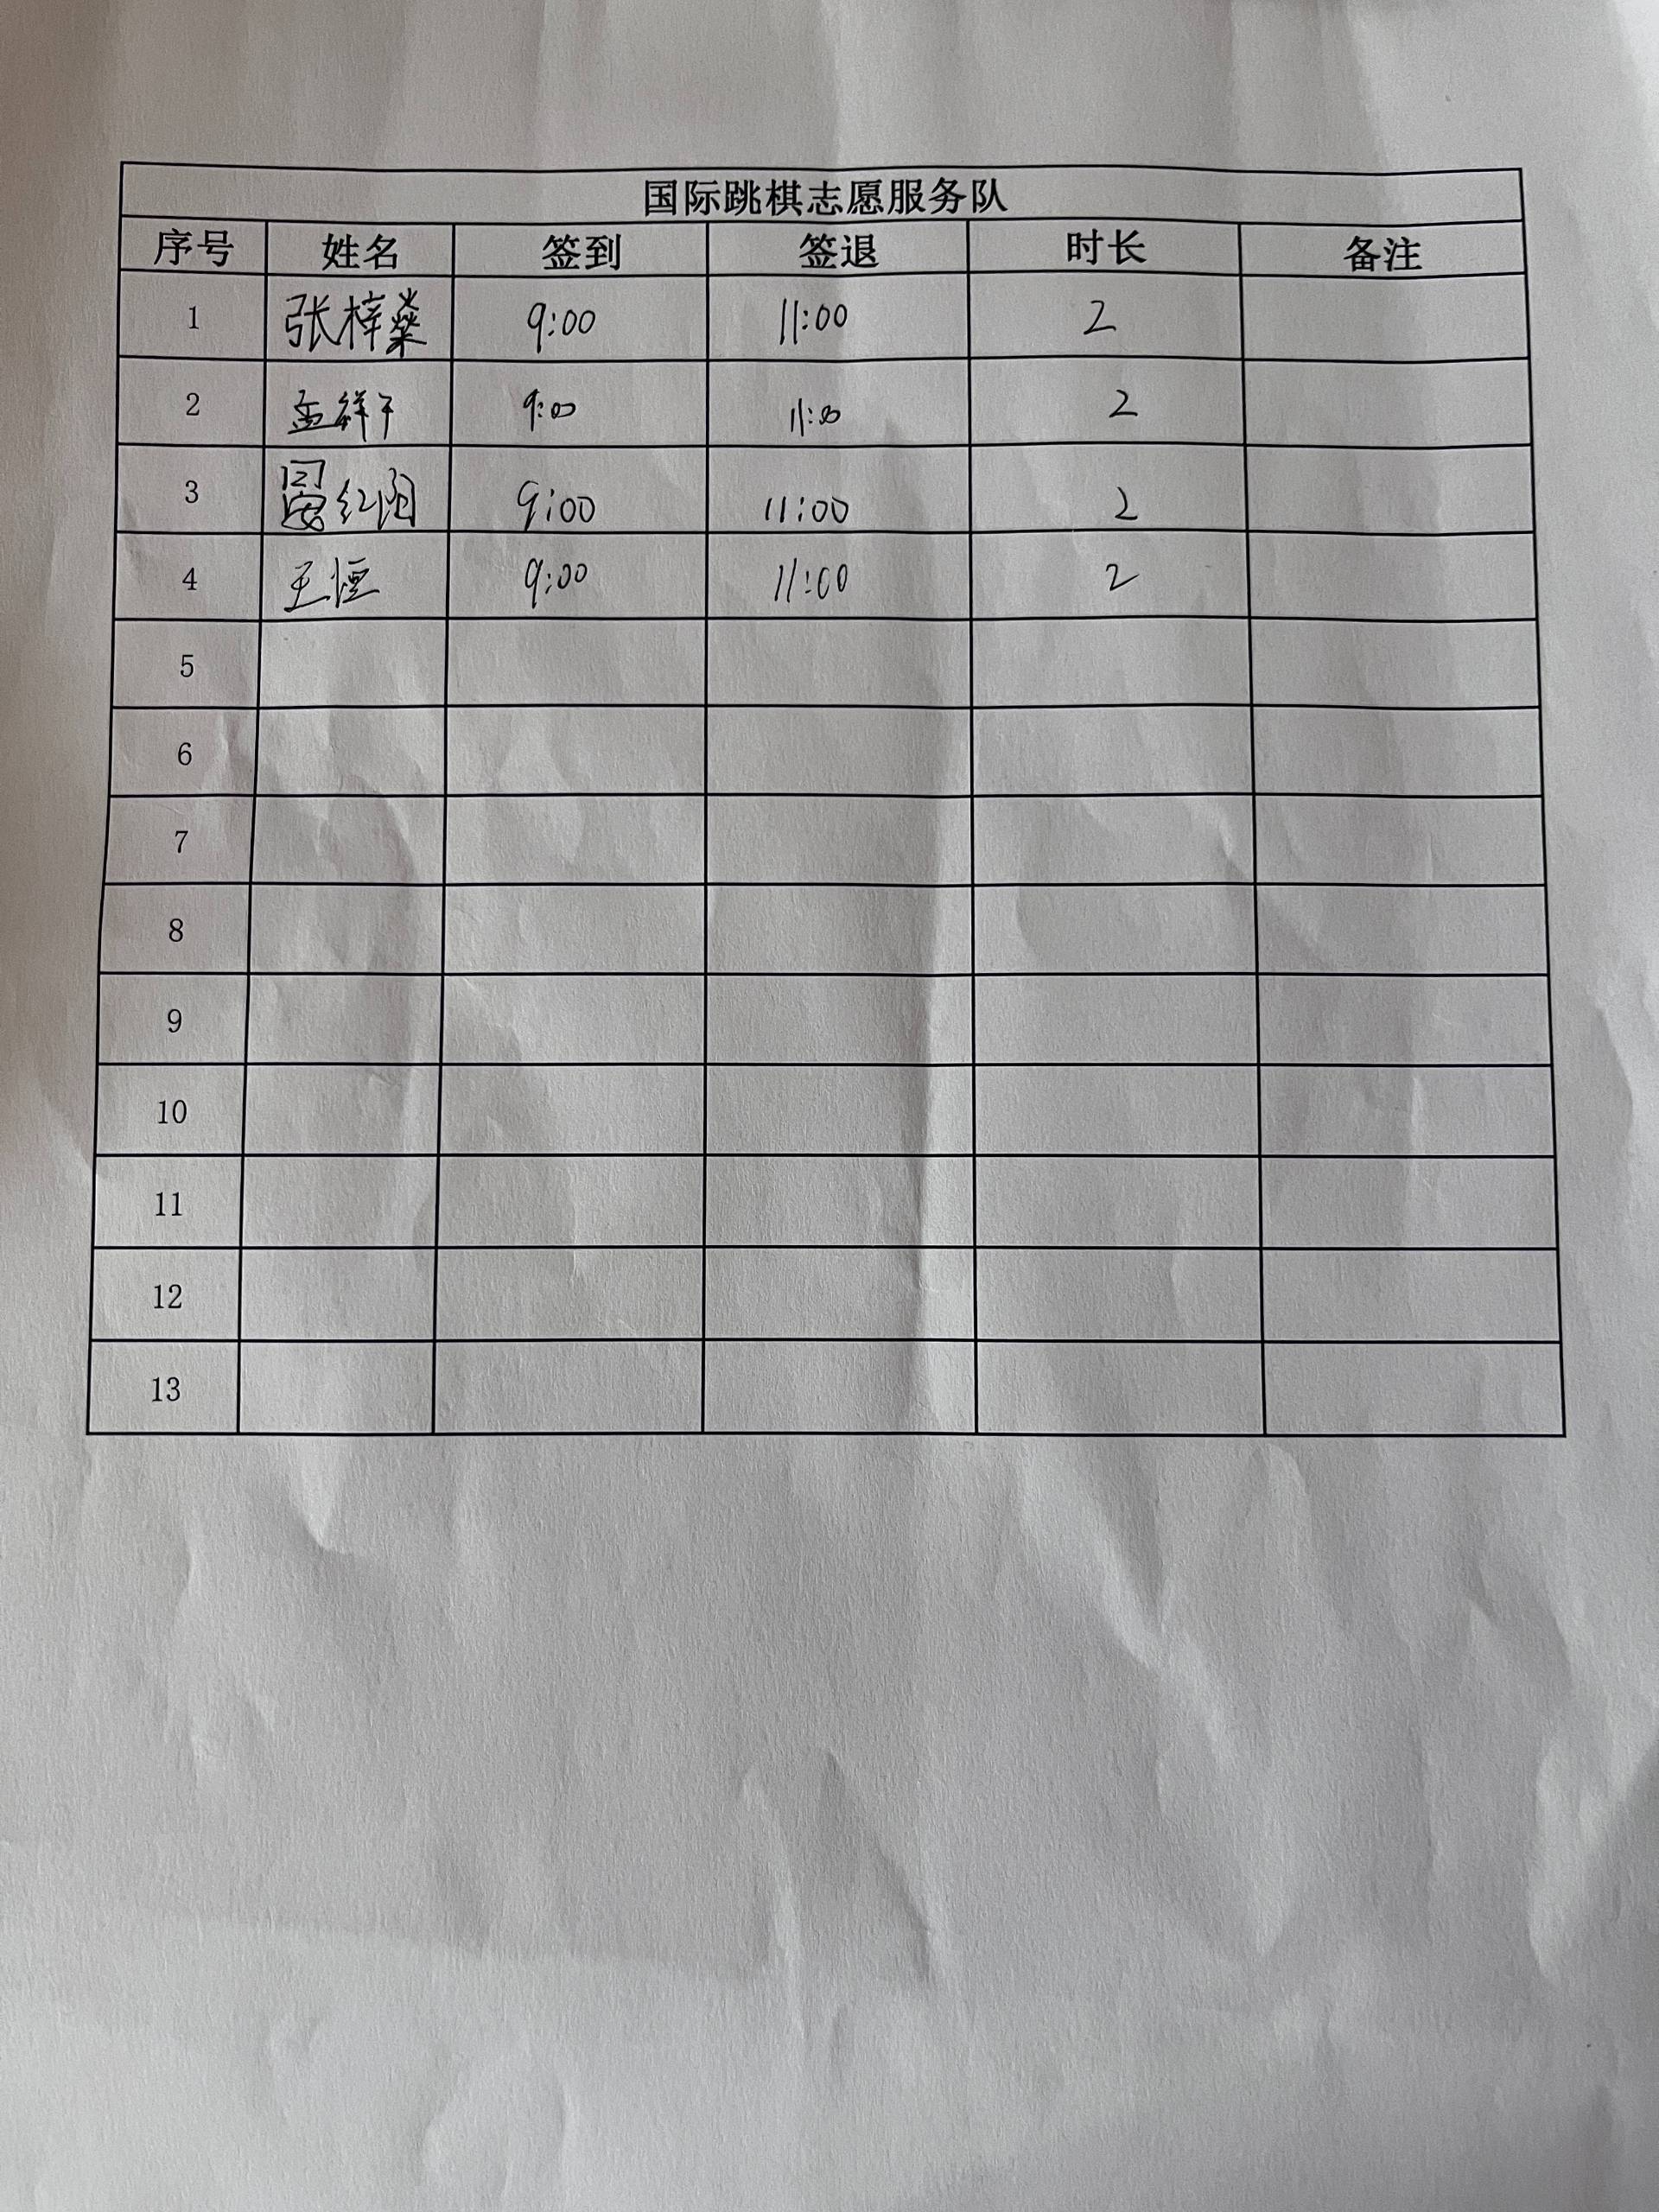 国际跳棋志愿服务队
序号 姓名 签到 签退 时长 备注
1 张梓燊 9:00 11:00 2
2 孟祥 9:00 11:00 2
3 红阳 9:00 11:00 2
4 王恒 9:00 11:00 2
5
6
7
8
9
10
11
12
13